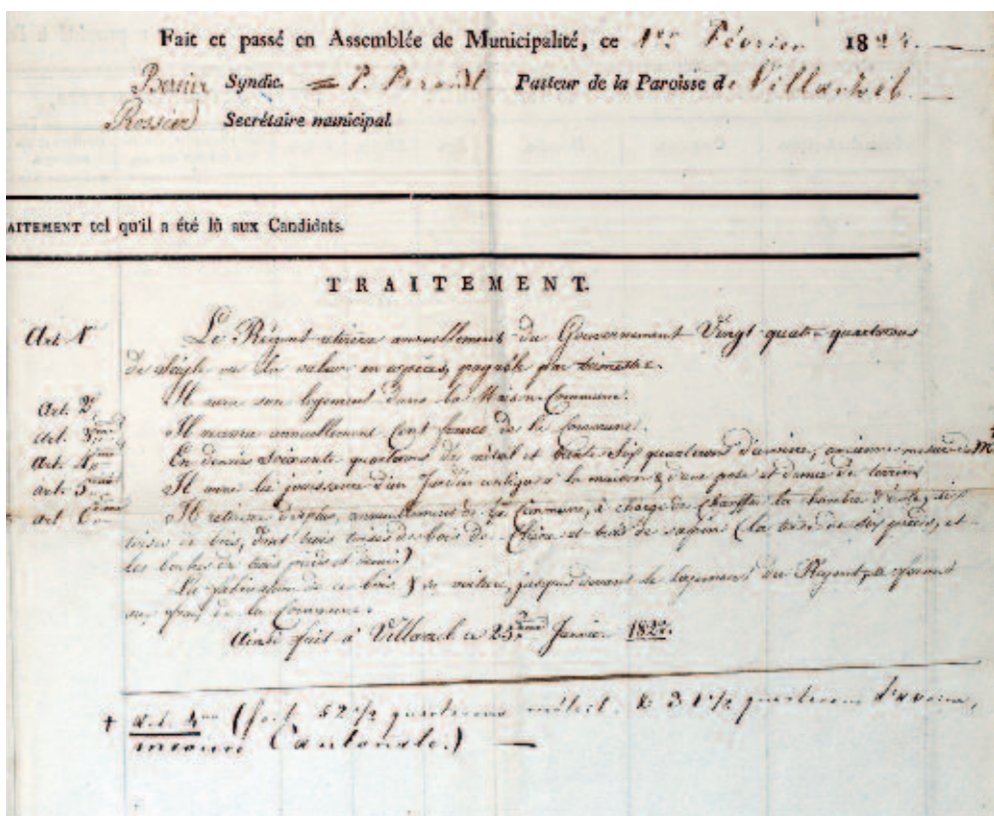 Fait et passé en Assemblée de Municipalité, ce 1er Février 182
Syndic. = P. Pasteur de la Paroisse de Villarzel.
Rossier Secrétaire municipal.
AITEMENT tel qu'il a été lû aux Candidats.
TRAITEMENT.
Art. 1er Le Régent retirera annuellement du Gouvernement Vingt quatre quarterons
de seigle ou la valeur en espèces, payable par trimestre.
Art. 2. Il aura son logement dans la Maison Commune.
Art. 3me Il recevra annuellement Cent francs de la Commune.
Art. 4me En denrées Soixante quarterons de méteil et trente Six quarterons d'avoine, ancienne mesure de
Art. 5me Il aura la jouissance d'un Jardin contigu à la maison & d'une pose et demie de terrain
Art. 6me Il retirera de plus, annuellement de la Commune, à charge de chauffer la chambre d'école, six
toises de bois, dont trois toises de bois de chêne et trois de sapin (la toise de six pieds, et
les buches de trois pieds et demi)
La fabrication de ce bois & sa voiture, jusques devant le logement du Régent, se feront
aux frais de la Commune.
Ainsi fait à Villarzel ce 25me Janvier 182
+ art. 4me (fait 52 1/2 quarterons méteil & 31 1/2 quarterons d'avoine,
mesure Cantonale.)